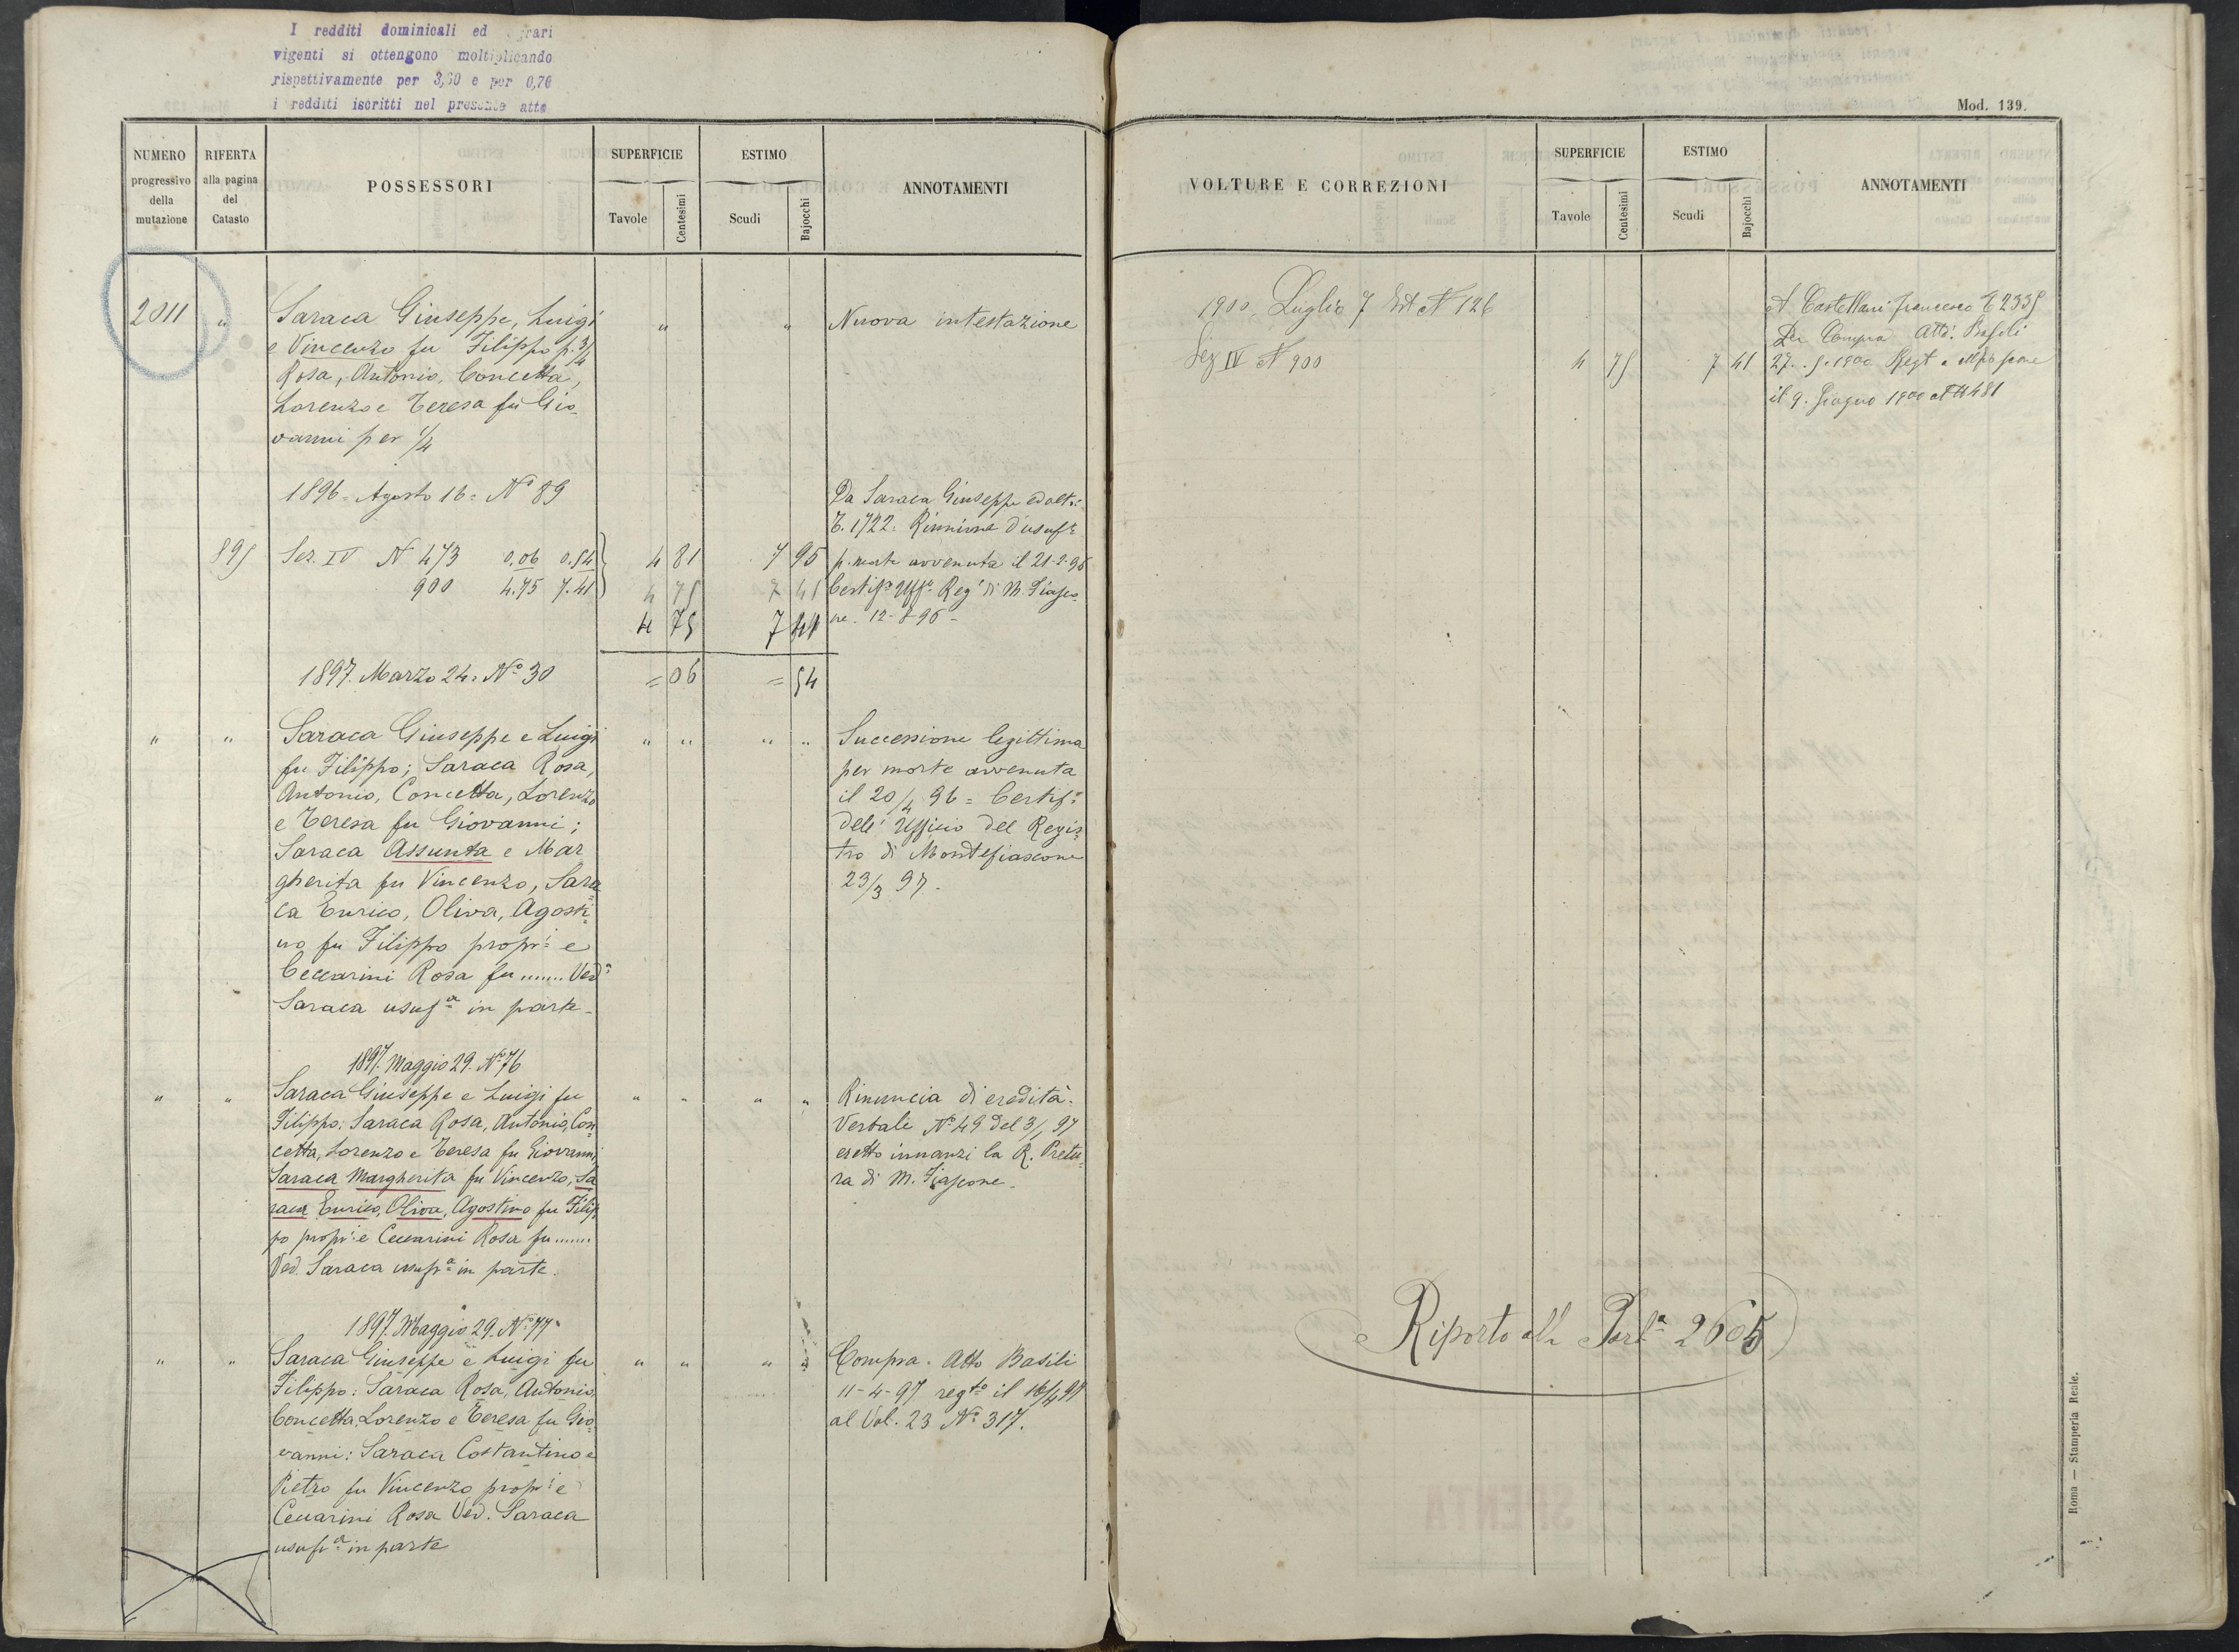 I redditi dominicali ed agrari
vigenti si ottengono moltiplicando
rispettivamente per 3,60 e per 0,70
i redditi iscritti nel presente atto
NUMERO
progressivo
della
mutazione
RIFERTA
alla pagina
del
Catasto
POSSESSORI
SUPERFICIE
Tavole
Centesimi
ESTIMO
Scudi
Bajocchi
ANNOTAMENTI
2011 " Saraca Giuseppe, Luigi " " Nuova intestazione
e Vincenzo fu Filippo p. 3/4
Rosa, Antonio, Concetta,
Lorenzo e Teresa fu Gio-
vanni per 1/4
1896 = Agosto 16 = N° 89 Da Saraca Giuseppe ed altri
T. 1722. Riunione d'usuf°
895 Sez. IV N 473 0.06 0.54 4 81 7 95 p. morte avvenuta il 21-2-96
900 4.75 7.41 4 75 7 41 Certif° Uff° Reg° di M. Fiasco
4 75 7 41 ne. 12-8-96 -
1897. Marzo 24 = N° 30 = 06 = 54
" " Saraca Giuseppe e Luigi " " " " Successione legittima
fu Filippo; Saraca Rosa, per morte avvenuta
Antonio, Concetta, Lorenzo il 20/4 96 = Certif°
e Teresa fu Giovanni; dell' Ufficio del Regis=
Saraca Assunta e Mar tro di Montefiascone
gherita fu Vincenzo, Sara 23/3 97.
ca Enrico, Oliva, Agosti=
no fu Filippo propri e
Ceccarini Rosa fu ...... Ved°
Saraca usufa in parte -
1897. Maggio 29. N° 76
" " Saraca Giuseppe e Luigi fu " " " " Rinuncia di eredità.
Filippo: Saraca Rosa, Antonio, Con= Verbale N° 49 del 3/1 97
cetta, Lorenzo e Teresa fu Giovanni; eretto innanzi la R. Pretu=
Saraca Margherita fu Vincenzo, Sa ra di M. Fiascone -
raca Enrico, Oliva, Agostino fu Filip
po propri e Ceccarini Rosa fu ......
Ved. Saraca usufa in parte.
1897. Maggio 29. N° 77
" " Saraca Giuseppe e Luigi fu " " " " Compra. Atto Basili
Filippo: Saraca Rosa, Antonio, 11-4-97 regto il 16/4 97
Concetta, Lorenzo e Teresa fu Gio= al Vol. 23 N° 317.
vanni: Saraca Costantino e
Pietro fu Vincenzo propri e
Ceccarini Rosa Ved. Saraca
usufa in parte
Mod. 139.
VOLTURE E CORREZIONI
SUPERFICIE
Tavole
Centesimi
ESTIMO
Scudi
Bajocchi
ANNOTAMENTI
1900, Luglio 7 N 126 A Castellani Francesco T 2335
Per Compra Atto Basili
Sez IV N 900 4 75 7 41 27. 5. 1900 Regt a Mtefiascone
il 9. Giugno 1900 al N 481
Riporto alla Parta 2605
SPENTA
Roma — Stamperia Reale.